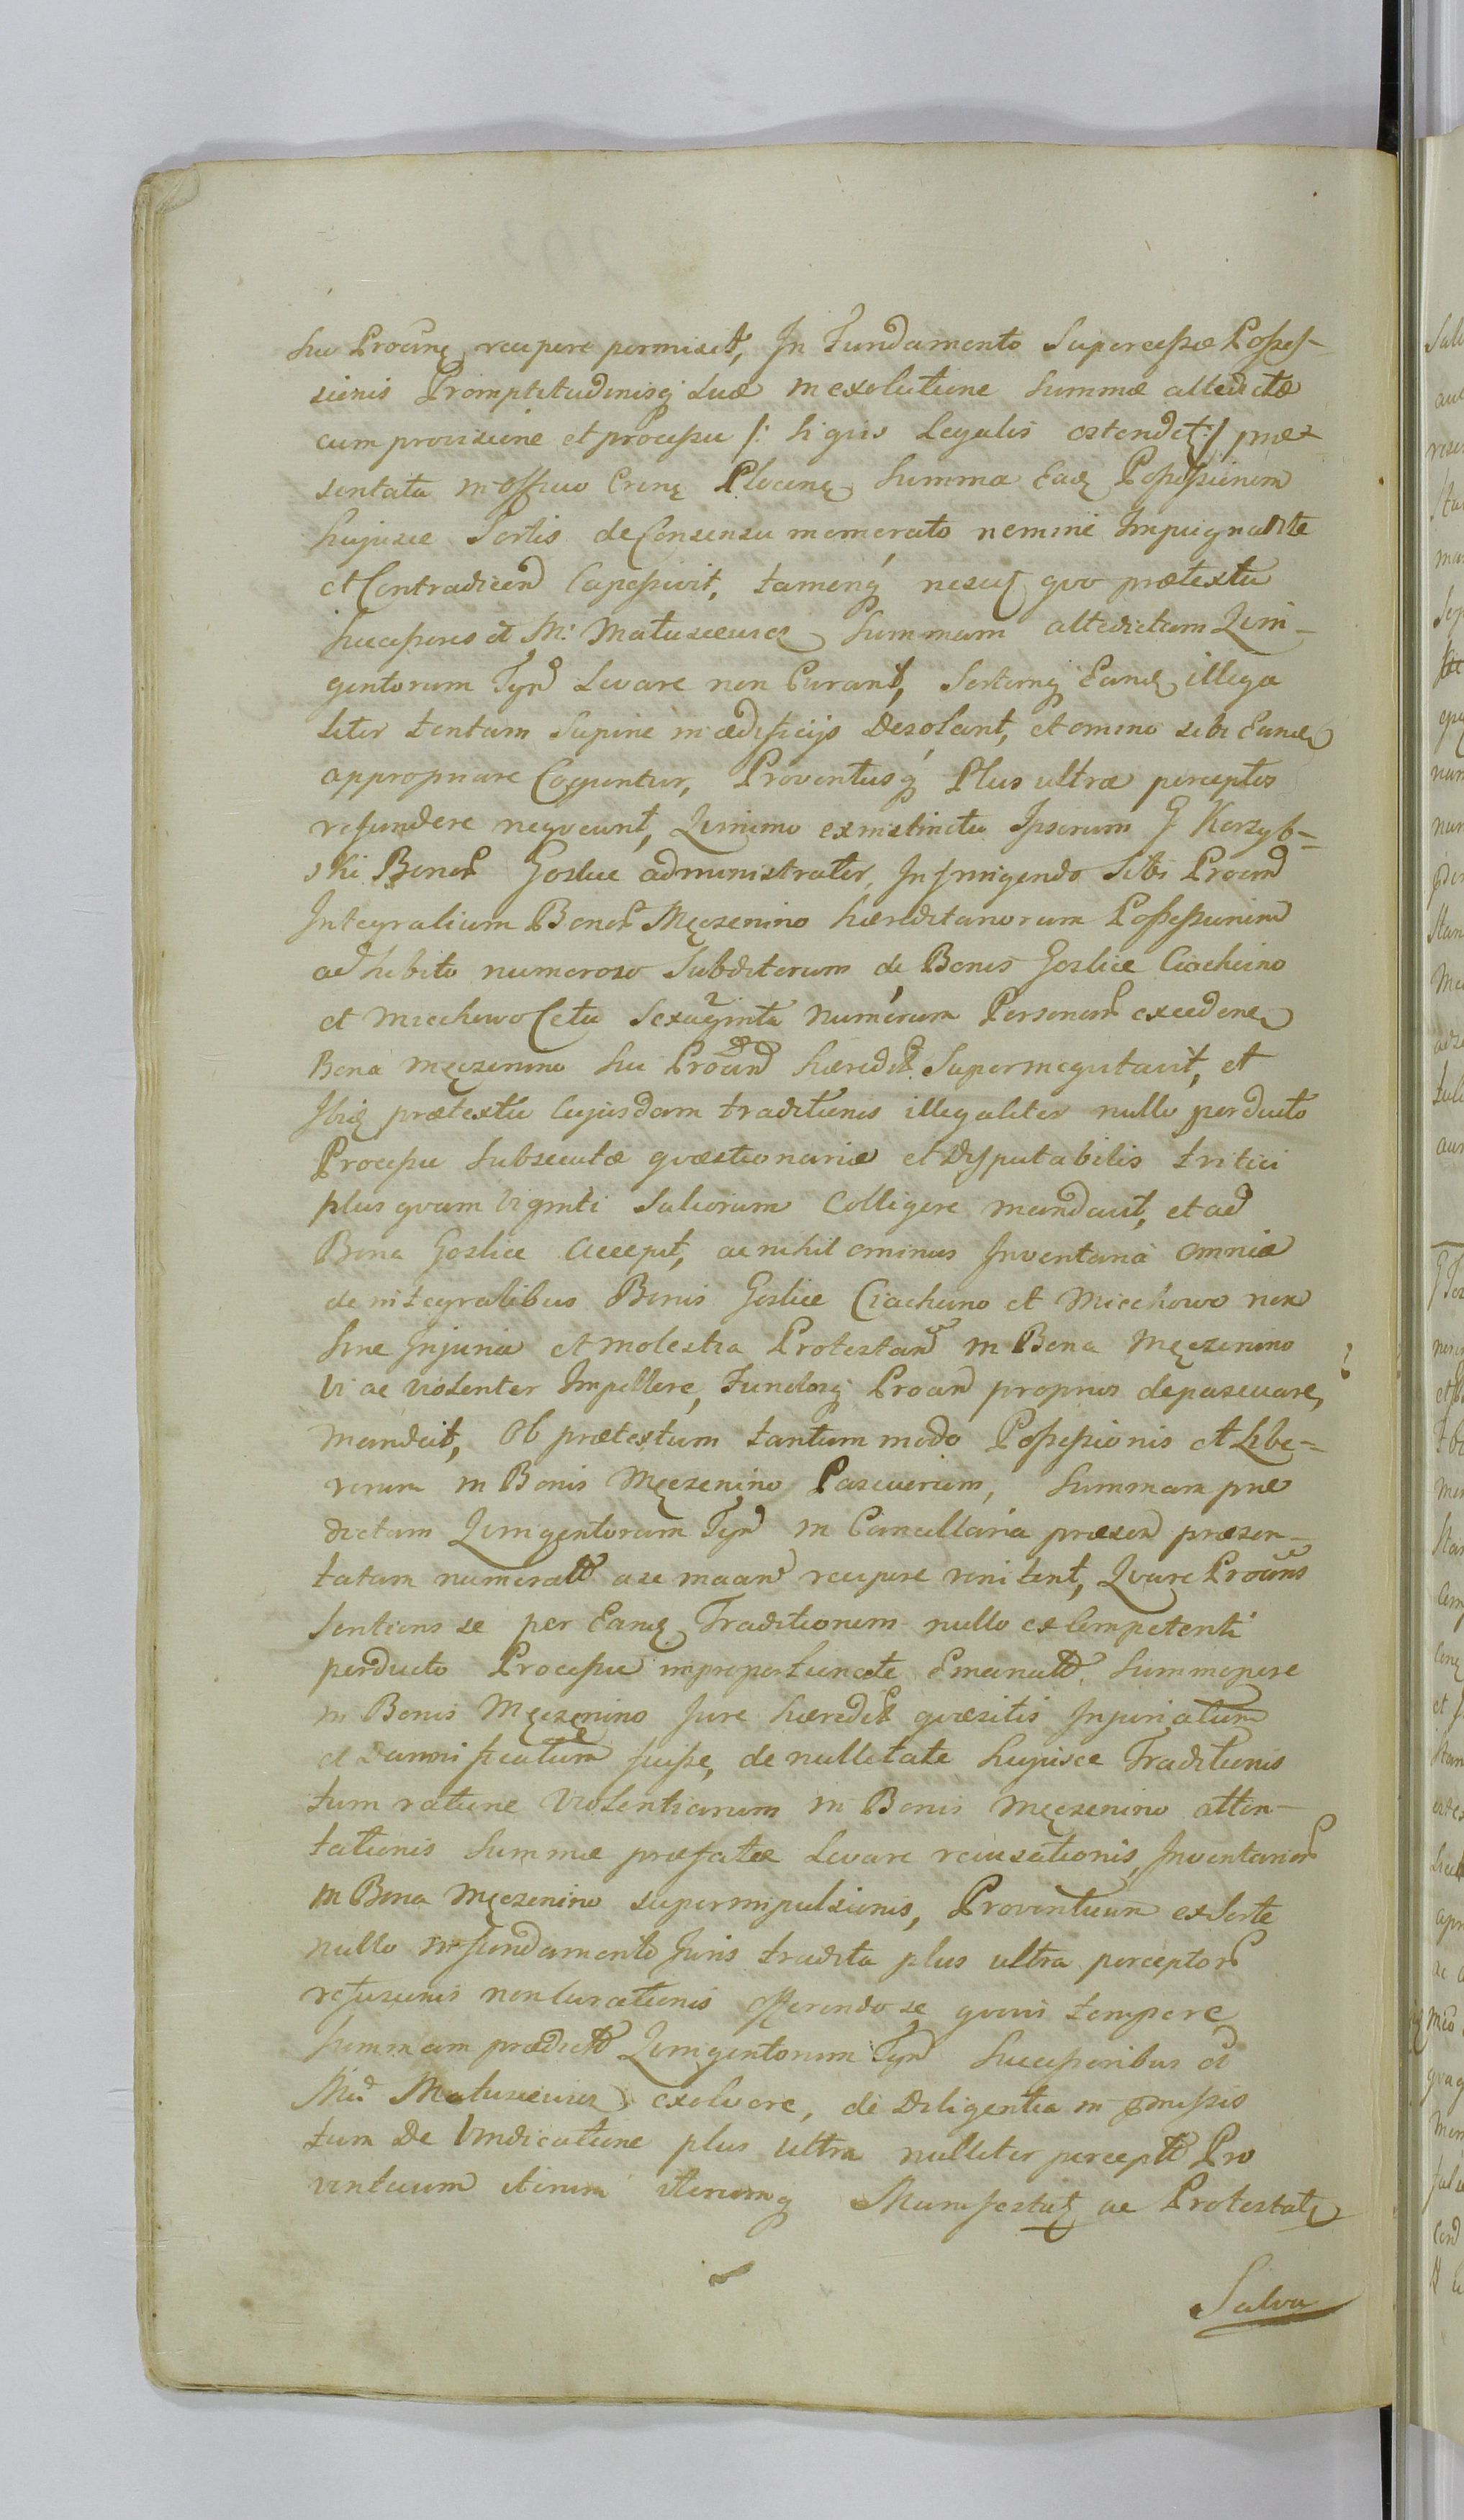 suo Procine recipere permisit, In Fundamento Supercessæ Posses-
sionis Promptitudinisq suæ in exolutione Summæ attedictæ
cum provisione et processu /: si qvis Legalis ostendet :/ præ-
sentata in Officio Plocen Summa Ead Possessionem
hujusce Sortis de Consensu memorato nemine Impugnante
et Contradicen Capessivit, tamenq nescit qvo prætextu
Successores et M: Matuscewicz Summam altedictam Qvin-
gentorum Tyn Levare non Curant, Sortemq Eand illega
liter tentam Supine in ædificijs Desolant, et omino sibi Eand
appropriare Conantur, Proventusq Plus ultra perceptos
refundere neqveunt, Qvinimo ex instinctu Ipsorum G Korzyb=
ski Bonor Goslice administrator, Infringendo Sibi Procand
Integralium Bonor Męczenino hæreditariorum Possessionem
adhibito numeroso Subditorum de Bonis Goslice Ciachcino
et Miechowo Cetu Sexaginta numerum Personar exceden
Bona Męczenino suo Procand hæredit Supermegvitavit, et
Ibiq prætextu Cujusdam traditionis illegaliter nullo perducto
Processu Subsecutæ qvæstionariæ et Disputabilis tritici
plus qvam Viginti Saliorum Colligere mandavit, et ad
Bona Goslice accepit, ac nihil ominus Inventaria omnia
de integralibus Bonis Goslice Ciachcino et Miechowo non
sine Injuria et molestia Protestan in Bona Męczenino
Vi ac violenter Impellere, Fundosq Procan proprios depascuare
Mandavit, Ob prætextum tantummodo Possessionis et Libe=
rorum in Bonis Męczenino Pascuorum, Summam præ
dictam Qvingentorum Tyn in Cancellaria præsen præsen-
tatam numerat recipere renitent, Qvare Procans
Sentiens se per Eand Traditionem nullo ex Competenti
perducto Processu improportionate Emanat, Summopere
in Bonis Męczenino Jure hæredit qvæsitis Injuriatum
et Damnificatum fuisse, de nullitate hujusce Traditionis
tum ratione Violentiarum in Bonis Męczenino atten-
tationis Summæ præfatæ Levare recusationis, Inventarior
in Bona Męczenino superimpulsionis, Proventuum ex Sorte
nullo in fundamento Juris tradita plus ultra perceptor
refusionis non Curationis offerendo se qvovis tempore
Summam prædict Qvingentorum Tyn Successoribus et
M Matuscewicz exolvere, de Diligentia in præmissis
tum De Vindicatione plus Ultra nulliter percept Pro
ventuum iterum iterumq Manifestat ac Protestat
Salva